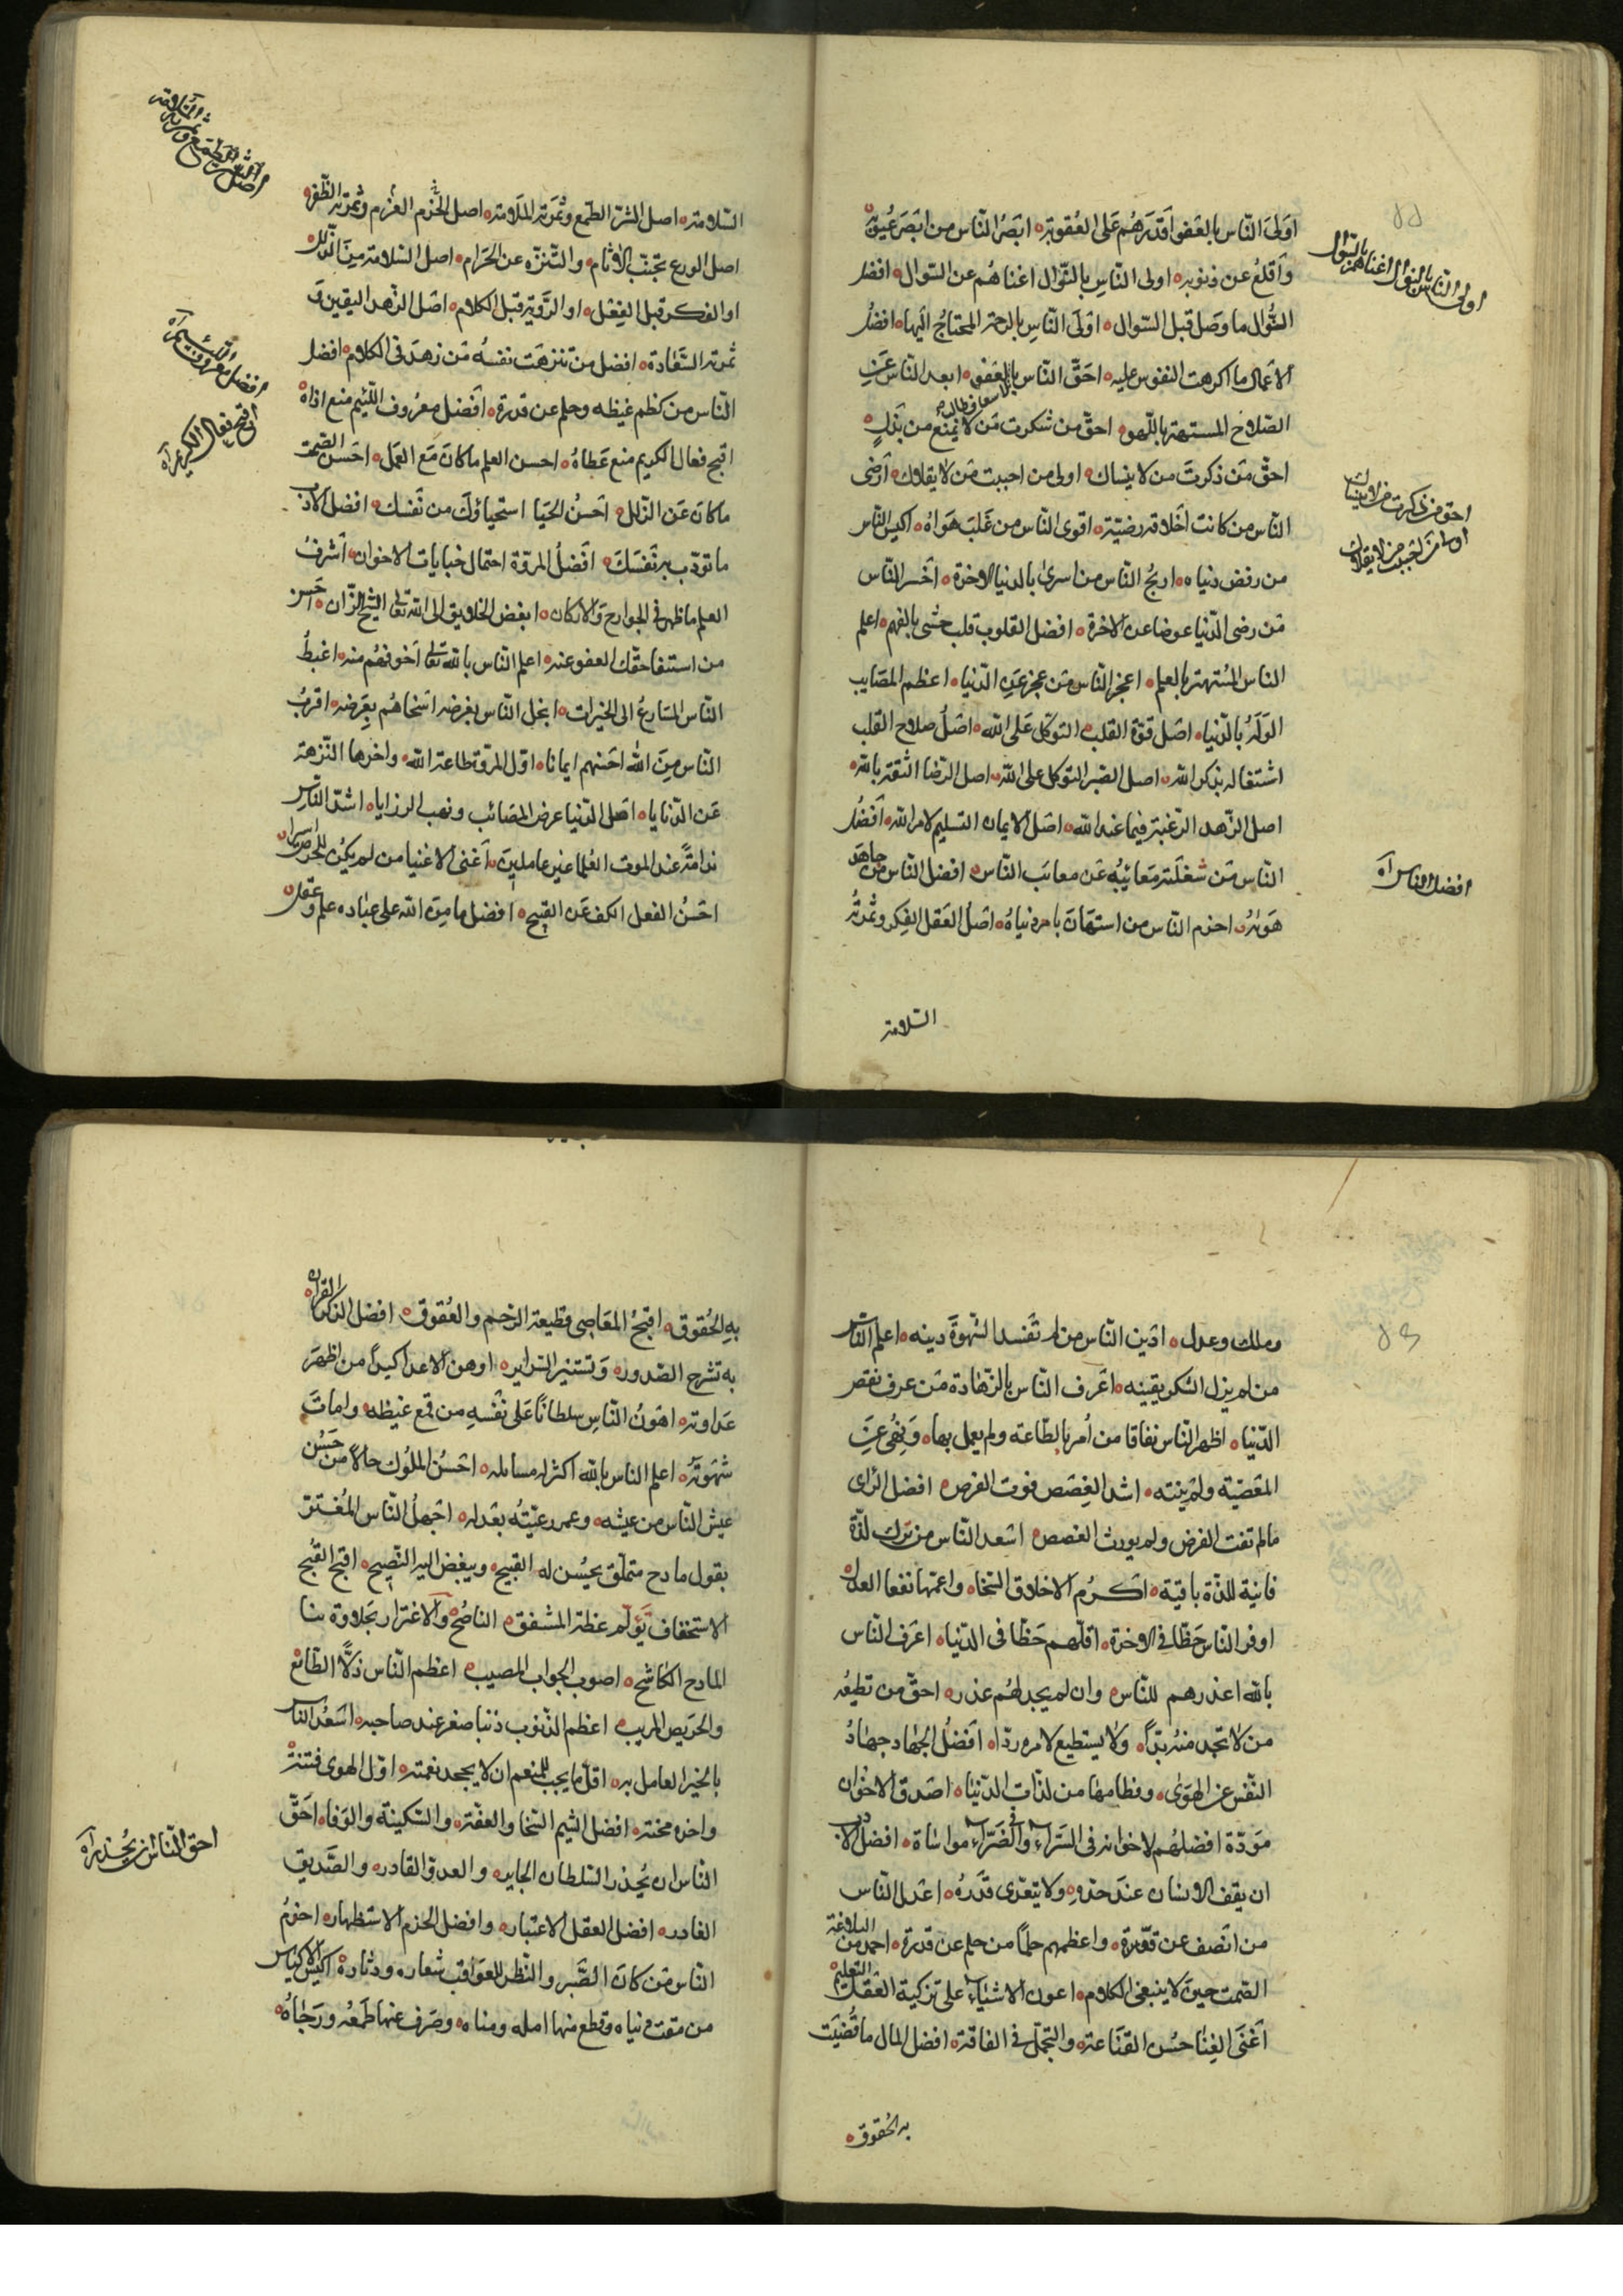 اولى الناس بالعفو اقدرهم على العقوبة ابصر الناس من ابصر عيوبه
واقلع عن ذنوبه اولى الناس بالنوال اغناهم عن السوال افضل
النوال ما وصل قبل السوال اولى الناس بالرحمة المحتاج اليها افضل
الاعمال ما اكرهت النفوس عليه احق الناس بالاسعاف طالب العفو ابعد الناس عن
الصلاح المستهتر باللهو احق من شكرت من لا يمنع من يذل
احق من ذكرت من لا ينساك اولى من احببت من لا يقلاك ارضى
الناس من كانت اخلاقه رضية اقوى الناس من غلب هواه اكيس الناس
من رفض دنياه اربح الناس من اسرى بالدنيا الاخرة اخسر الناس
من رضى الدنيا عوضا عن الاخرة افضل القلوب قلب حشى بالفهم اعلم
الناس المستهتر بالعلم اعجز الناس من عجز عن الدنيا اعظم المصايب
الوله بالدنيا اصل قوة القلب التوكل على الله اصل صلاح القلب
اشتغاله بذكر الله اصل الصبر التوكل على الله اصل الرضا الثقة بالله
اصل الزهد الرغبة فيما عند الله اصل الايمان التسليم لامر الله افضل
الناس من شغلته معائبه عن معائب الناس افضل الناس من جاهد
هواه احزم الناس من استهان بامر دنياه اصل العقل الفكر وثمرته
السلامة
55
اولى الناس بالنوال اغناهم عن السوال
احق من ذكرت من لا ينساك
اولى من احببت من لا يقلاك
افضل الناس اه
السلامة اصل الشره الطمع وثمرته الملامة اصل الحزم العزم وثمرته الظفر
اصل الورع تجنب الاثام والتنزه عن الحرام اصل السلامة من الزلل
او الفكر قبل الفعل او الروية قبل الكلام اصل الزهد اليقين و
ثمرته السعادة افضل من تنزهت نفسه من زهد فى الكلام افضل
الناس من كظم غيظه وحلم عن قدرة افضل معروف اللئيم منع اذاه
اقبح فعال الكريم منع عطاه احسن العلم ما كان مع العمل احسن الصمت
ما كان عن الزلل احسن الحيا استحياؤك من نفسك افضل الادب
ما تودب به نفسك افضل المروة احتمال خبايات الاخوان اشرف
العلم ما ظهر فى الجوارح والاركان ابغض الخلايق الى الله تعالى الشيخ الزان احسن
من استنفاحقك العفو عنه اعلم الناس بالله تعالى اخوفهم منه اغبط
الناس المسارع الى الخيرات ابخل الناس بغرضه اسخاهم بعرضه اقرب
الناس من الله احسنهم ايمانا اول المروة طاعة الله واخرها التنزه
عن الدنايا اهل الدنيا عرض المصائب ونهب الرزايا اشد الناس
ندامة عند الموت العلما غير عاملين اغنى الاغنيا من لم يكن للحرص اسيرا
احسن الفعل الكف عن القبيح افضل ما من الله على عباده علم وعقل
اصل الشره الطمع وثمرته الملامة
افضل معروف اللئيم اه
اقبح فعال الكريم اه
وملك وعدل ادين الناس من لم تفسد الشهوة دينه اعلم الناس
من لم يزل الشك يقينه اعرف الناس بالزهادة من عرف نقص
الدنيا اظهر الناس نفاقا من امر بالطاعة ولم يعمل بها ونهى عن
المعصية ولم ينته اشد الغصص فوت الفرص افضل الراى
ما لم تفت الفرض ولم يورث الغصص اسعد الناس من ترك لذة
فانية للذة باقية اكرم الاخلاق السخا واعمها نفعا العدل
اوفر الناس حظا فى الاخرة اقلهم حظا فى الدنيا اعرف الناس
بالله اعذرهم للناس وان لم يجد لهم عذر احق من تطيعه
من لا تجد منه بدا ولا يستطيع لامره ردا افضل الجهاد جهاد
النفس عن الهوى وفطامها من لذات الدنيا اصدق الاخوان
مودة افضلهم لاخوانه فى السراء وفى الضراء مواساة افضل الادب
ان يقف الانسان عند حده ولا يتعدى قدره اعدل الناس
من انصف عن قوة واعظمهم حلما من حلم عن قدرة احمد من البلاغة
الصمت حين لا ينبغى الكلام اعون الاشياء على تزكية العقل التعليم
اغنى الغنا حسن القناعة والتجمل فى الفاقة افضل المال ما قضيت
به الحقوق
به الحقوق اقبح المعاصى قطيعة الرحم والعقوق افضل الذكر القران
به تشرح الصدور وتستنير السراير اوهن الاعدا كيدا من اظهر
عداوته اهون الناس سلطانا على نفسه من قمع غيظه وامات
شهوته اعلم الناس بالله اكثر له مسايله احسن الملوك حالا من حسن
عيش الناس من عيشه وعم رعيته بعدله اجهل الناس المغتر
بقول مادح متملق يحسن له القبيح ويبغض اليه النصيح اقبح القبح
الاستخفاف بولم عظة المشفق الناصح والاغترار بحلاوة ثنا
المادح الكاشح اصوب الجواب المصيب اعظم الناس ذلا الطامع
والحريص المريب اعظم الذنوب ذنبا صغر عند صاحبه اسعد الناس
بالخير العامل به اقل ما يجب للمنعم ان لا يجحد نعمته اول الهوى فتنة
واخره محنة افضل الشيم السخا والعفة والسكينة والوفا احق
الناس ان يحذر السلطان الجاير والعدو القادر والصديق
الغادر افضل العقل الاعتبار وافضل الحزم الاستظهار احزم
الناس من كان الصبر والنظر للعواقب شعاره ودثاره اكيس الاكياس
من مقت دنياه وقطع منها امله ومناه وصرف عنها طمعه ورجاه
احق الناس ان يحذر اه